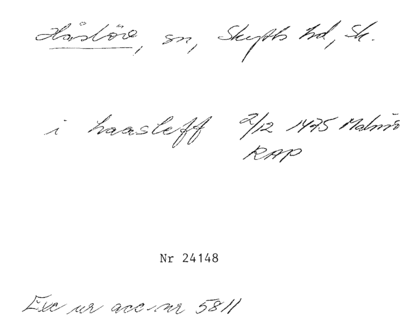 Håslöv, sn, Skytts hd, Sk.
i haasleff 2/12 1475 Malmö
RAP
Nr 24148
Exc ur acc.nr 5811